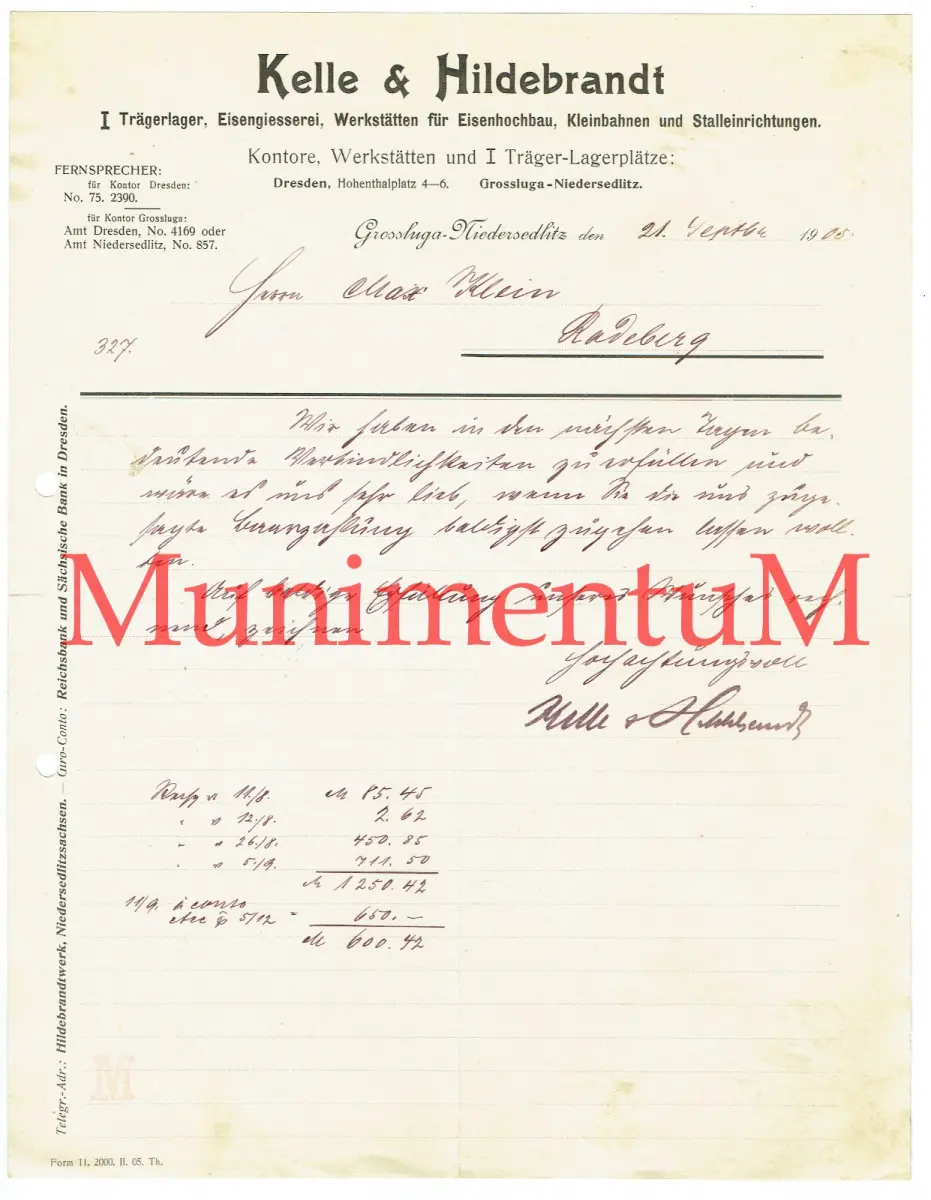 Kelle & Hildebrandt
I Trägerlager, Eisengiesserei, Werkstätten für Eisenhochbau, Kleinbahnen und Stalleinrichtungen.
Kontore, Werkstätten und I Träger-Lagerplätze:
Dresden, Hohenthalplatz 4—6. Grossluga-Niedersedlitz.
FERNSPRECHER:
für Kontor Dresden:
No. 75. 2390.
für Kontor Grossluga:
Amt Dresden, No. 4169 oder
Amt Niedersedlitz, No. 857.
Grossluga-Niedersedlitz den 21. Septbr 1905.
Herrn Max Klein
Radeberg
327.
Wir haben in den nächsten Tagen be-
deutende Verbindlichkeiten zu erfüllen und
wäre es uns sehr lieb, wenn Sie die uns zuge-
sagte Baarzahlung baldigst zugehen lassen woll-
ten.
Auf baldige Erfüllung unseres Wunsches rech-
nend, zeichnen
Hochachtungsvoll
Kelle & Hildebrandt
MunimentuM
Rechg v 11/8. M 85.45
" v 12/8. 2.62
" v 26/8. 450.85
" v 5./9. 711.50
M 1250.42
11/9. à conto
5/12 " 650.—
M 600.42
Telegr.-Adr.: Hildebrandtwerk, Niedersedlitzsachsen. — Giro-Conto: Reichsbank und Sächsische Bank in Dresden.
M
Form 11. 2000. II. 05. Th.